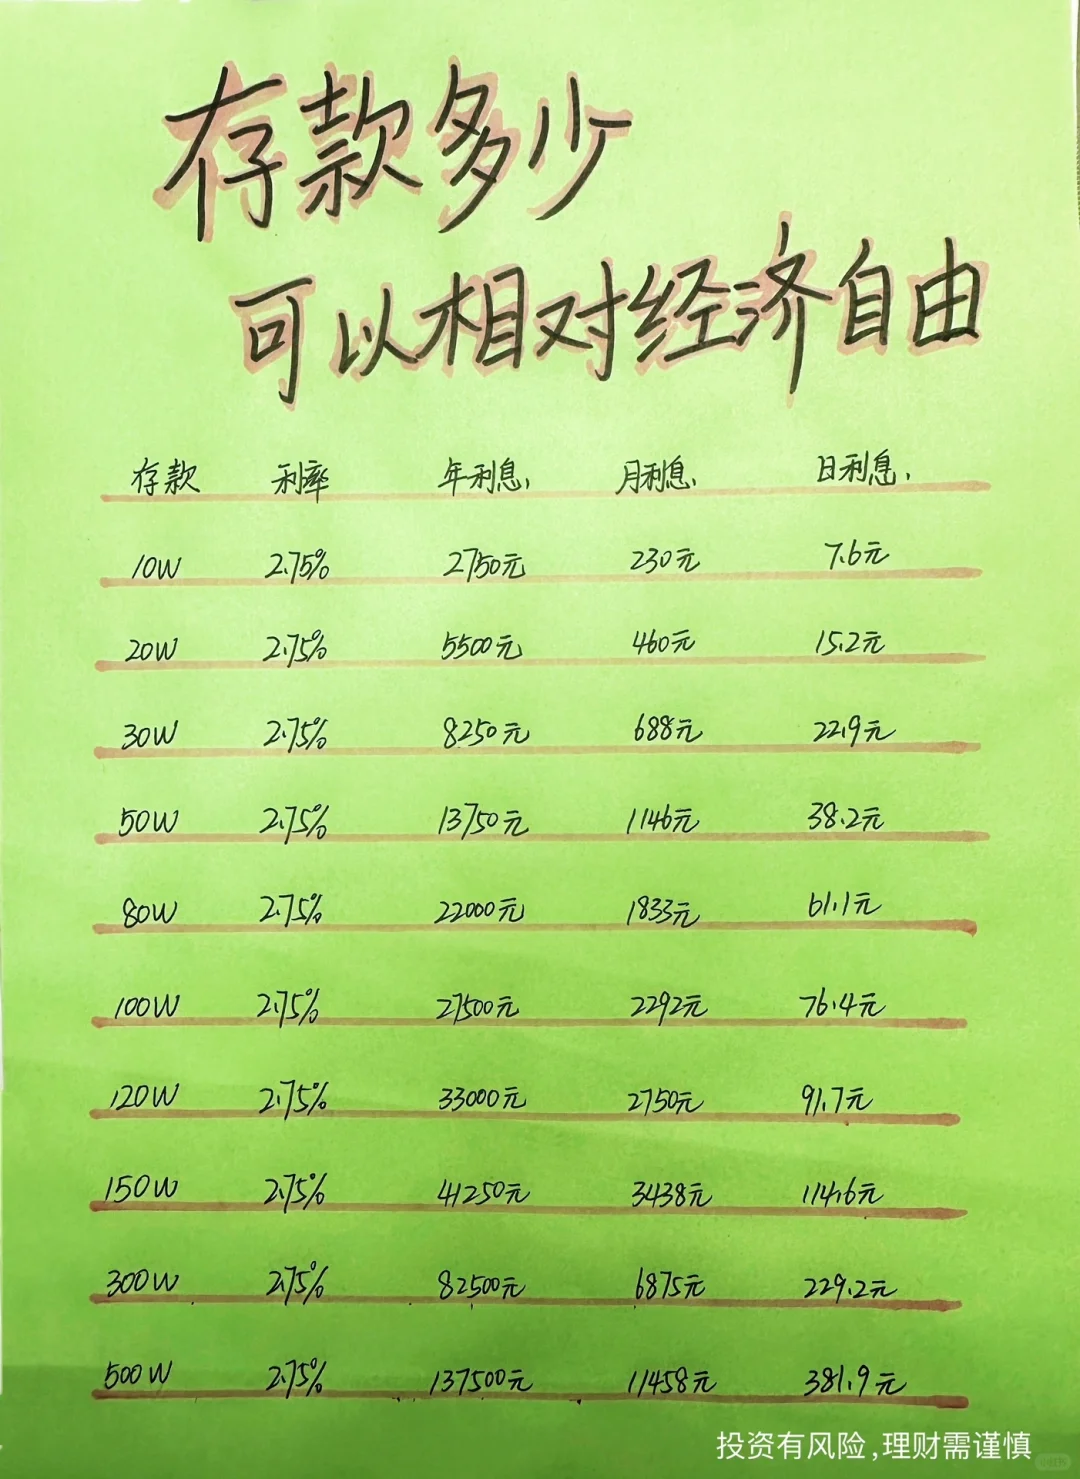 存款多少
可以相对经济自由
存款 利率 年利息, 月利息, 日利息,
10W 2.75% 2750元 230元 7.6元
20W 2.75% 5500元 460元 15.2元
30W 2.75% 8250元 688元 22.9元
50W 2.75% 13750元 1146元 38.2元
80W 2.75% 22000元 1833元 61.1元
100W 2.75% 27500元 2292元 76.4元
120W 2.75% 33000元 2750元 91.7元
150W 2.75% 41250元 3438元 114.6元
300W 2.75% 82500元 6875元 229.2元
500W 2.75% 137500元 11458元 381.9元
投资有风险,理财需谨慎
小红书